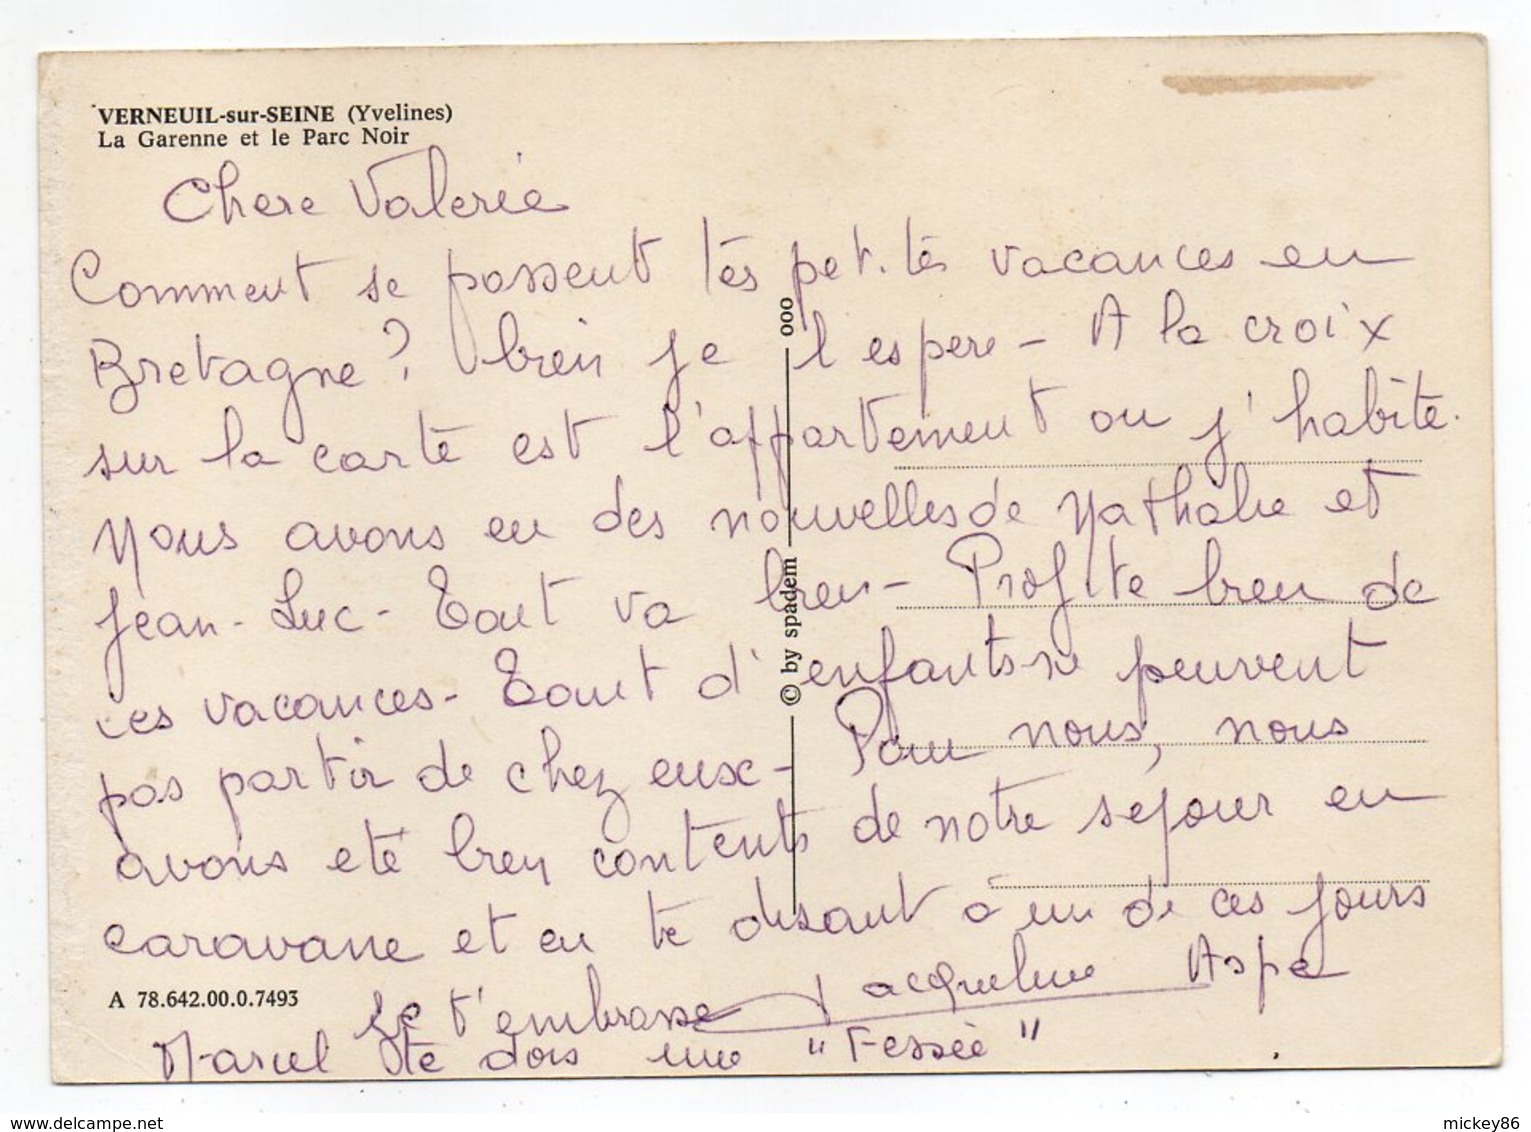 VERNEUIL-sur-SEINE (Yvelines)
La Garenne et le Parc Noir
Chere Valerie
Comment se passent tes petites vacances en
Bretagne ? bien je l'espere - A la croix
sur la carte est l'appartement ou j'habite.
Nous avons eu des nouvelles de Nathalie et
Jean-Luc - Tout va bien - Profite bien de
ces vacances - Tant d'enfants ne peuvent
pas partir de chez eux - Pour nous, nous
avons eté bien contents de notre sejour en
caravane et en te disant à un de ces jours
je t'embrasse Jacqueline Aspe
Marcel te dois une "Fessée"
A 78.642.00.0.7493
© by spadem ooo
mickey86